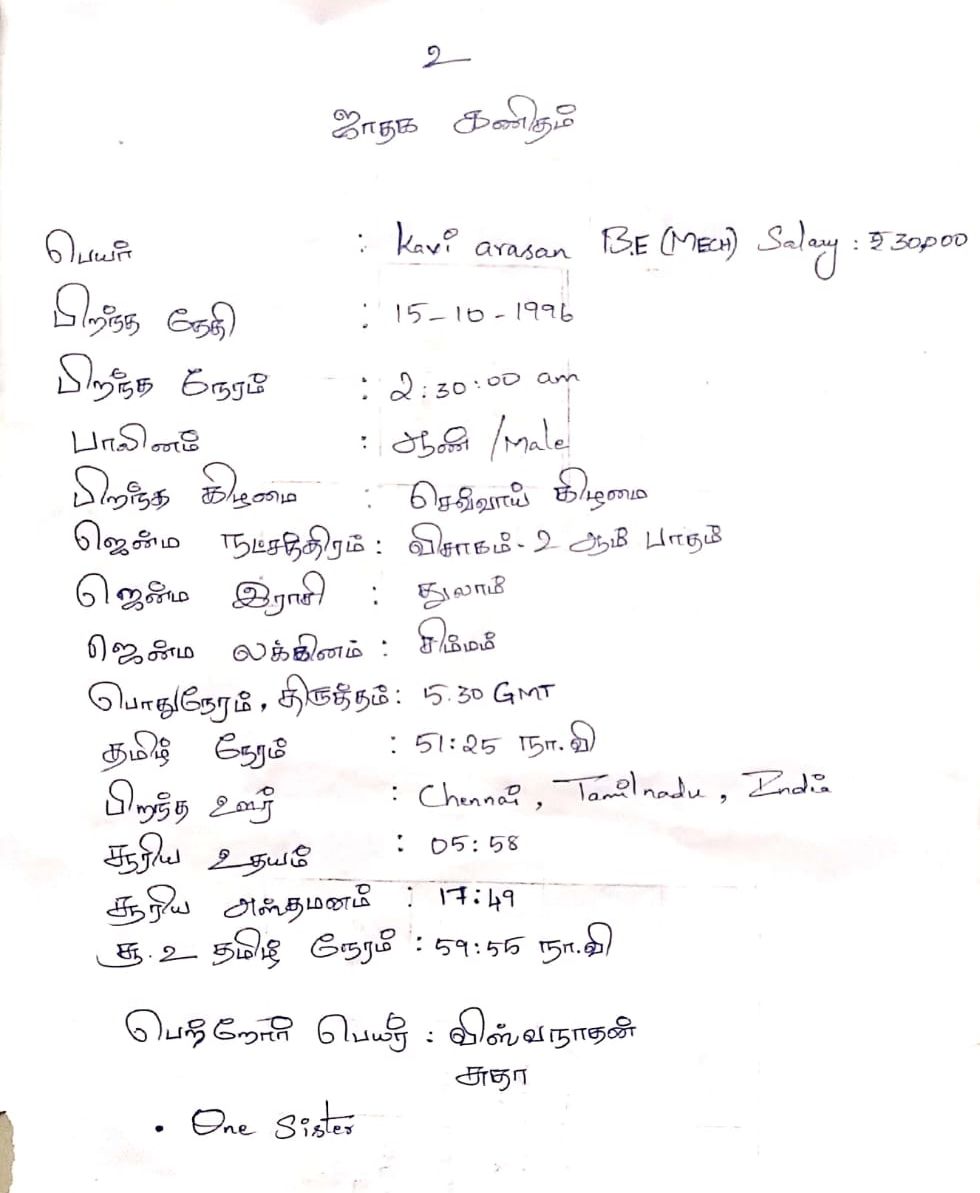 உ
ஜாதக கணிதம்
பெயர் : Kavi arasan B.E (MECH) Salary : ₹30,000
பிறந்த தேதி : 15-10-1996
பிறந்த நேரம் : 2:30:00 am
பாலினம் : ஆண் /Male
பிறந்த கிழமை : செவ்வாய் கிழமை
ஜென்ம நட்சத்திரம் : விசாகம் - 2 ஆம் பாதம்
ஜென்ம இராசி : துலாம்
ஜென்ம லக்கினம் : சிம்மம்
பொதுநேரம், திருத்தம் : 5.30 GMT
தமிழ் நேரம் : 51:25 நா.வி
பிறந்த ஊர் : Chennai, Tamilnadu, India
சூரிய உதயம் : 05:58
சூரிய அஸ்தமனம் : 17:49
சூ.உ தமிழ் நேரம் : 59:55 நா.வி
பெற்றோர் பெயர் : விஸ்வநாதன்
சுதா
• One Sister